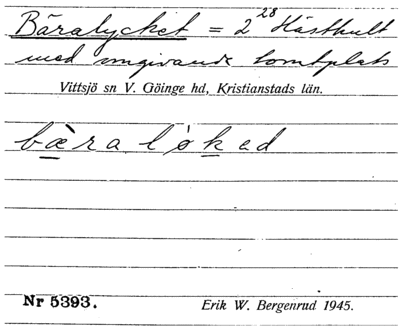 Bäralycket = 2²⁸ Hästhult
med omgivande tomtplats
Vittsjö sn V. Göinge hd, Kristianstads län.
bæ̀raløkəd
Nr 5393.
Erik W. Bergenrud 1945.